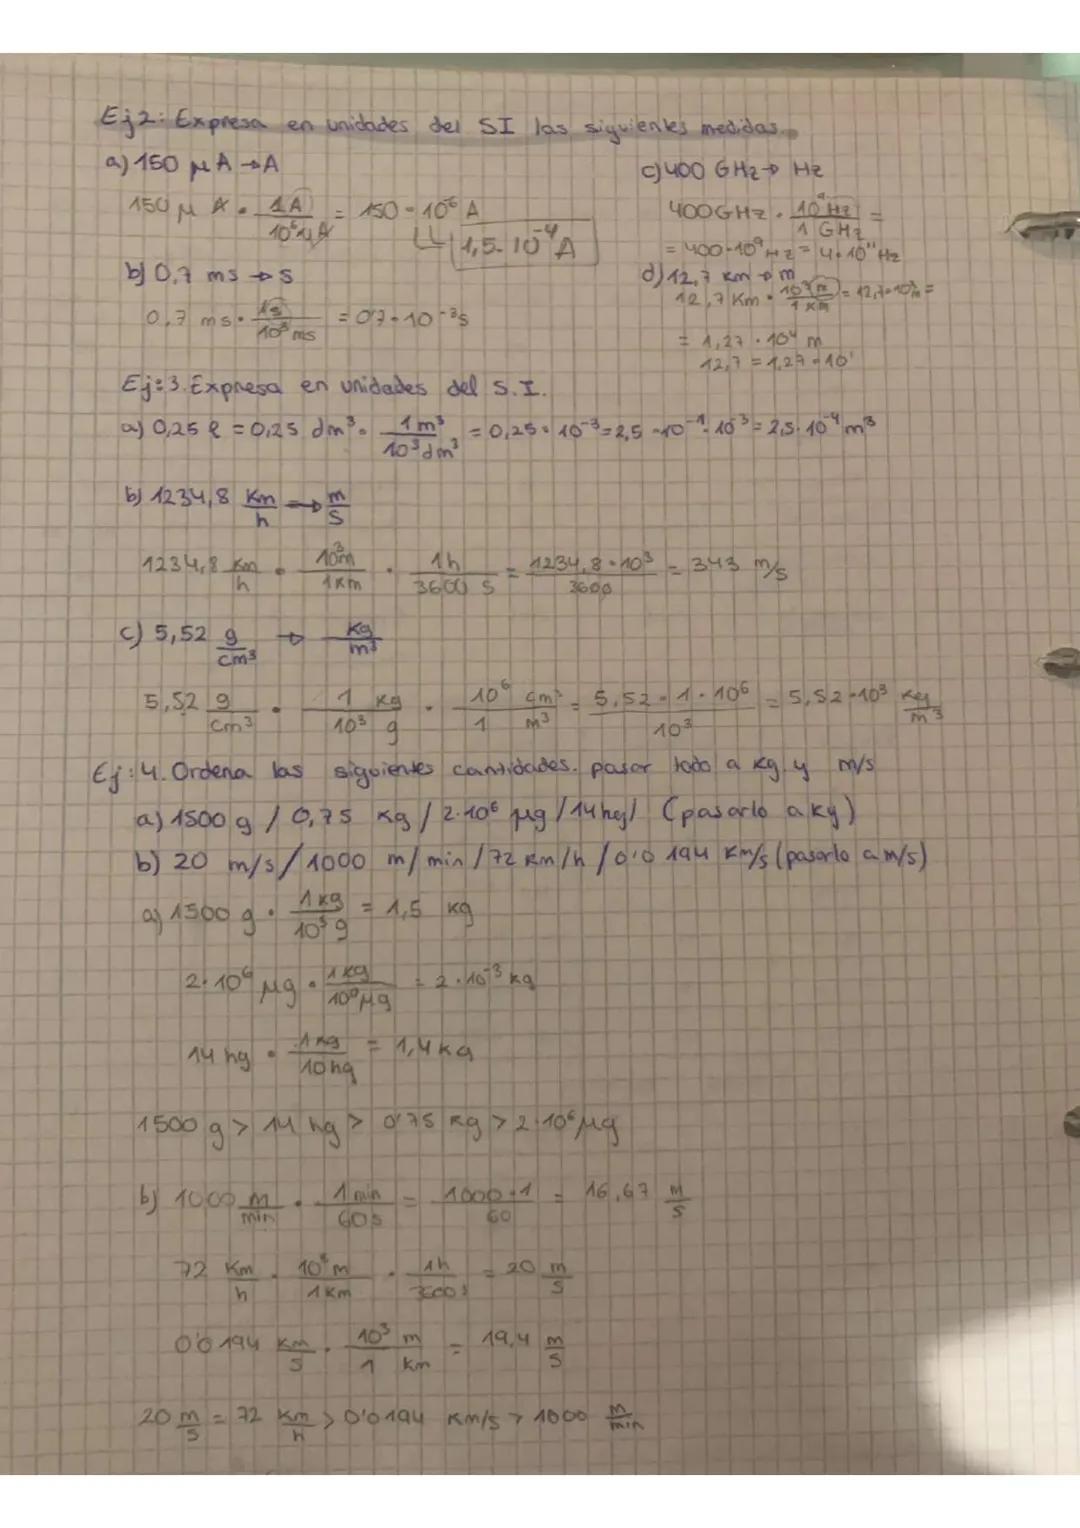 Ej2: Expresa en unidades del SI las siguientes medidas.
a) 150 μA → A
150 μA · 1A / 10⁶μA = 150 · 10⁻⁶ A
1,5 · 10⁻⁴ A
b) 0,7 ms → s
0,7 ms · 1s / 10³ ms = 0'7 · 10⁻³ s
c) 400 GHz → Hz
400GHz · 10⁹ Hz / 1 GHz =
= 400 · 10⁹ Hz = 4 · 10¹¹ Hz
d) 12,7 km → m
12,7 Km · 10³ m / 1 km = 12,7 · 10³ m =
= 1,27 · 10⁴ m
12,7 = 1,27 · 10¹
Ej:3. Expresa en unidades del S.I.
a) 0,25 ℓ = 0,25 dm³ · 1 m³ / 10³ dm³ = 0,25 · 10⁻³ = 2,5 · 10⁻¹ · 10⁻³ = 2,5 · 10⁻⁴ m³
b) 1234,8 Km/h → m/s
1234,8 Km/h · 10³m / 1Km · 1h / 3600 s = 1234,8 · 10³ / 3600 = 343 m/s
c) 5,52 g/cm³ → kg/m³
5,52 g/cm³ · 1 kg / 10³ g · 10⁶ cm³ / 1 m³ = 5,52 · 1 · 10⁶ / 10³ = 5,52 · 10³ kg/m³
Ej:4. Ordena las siguientes cantidades. pasar todo a kg y m/s
a) 1500 g / 0,75 kg / 2·10⁶ μg / 14 hg / (pasarlo a kg)
b) 20 m/s / 1000 m/min / 72 Km/h / 0'0194 Km/s (pasarlo a m/s)
a) 1500 g · 1 kg / 10³ g = 1,5 kg
2·10⁶ μg · 1 kg / 10⁹ μg = 2 · 10⁻³ kg
14 hg · 1 kg / 10 hg = 1,4 kg
1500 g > 14 hg > 0'75 kg > 2·10⁶ μg
b) 1000 m/min · 1 min / 60 s = 1000 · 1 / 60 = 16,67 m/s
72 Km/h · 10³ m / 1 Km · 1h / 3600 s = 20 m/s
0'0194 Km/s · 10³ m / 1 Km = 19,4 m/s
20 m/s = 72 Km/h > 0'0194 Km/s > 1000 m/min